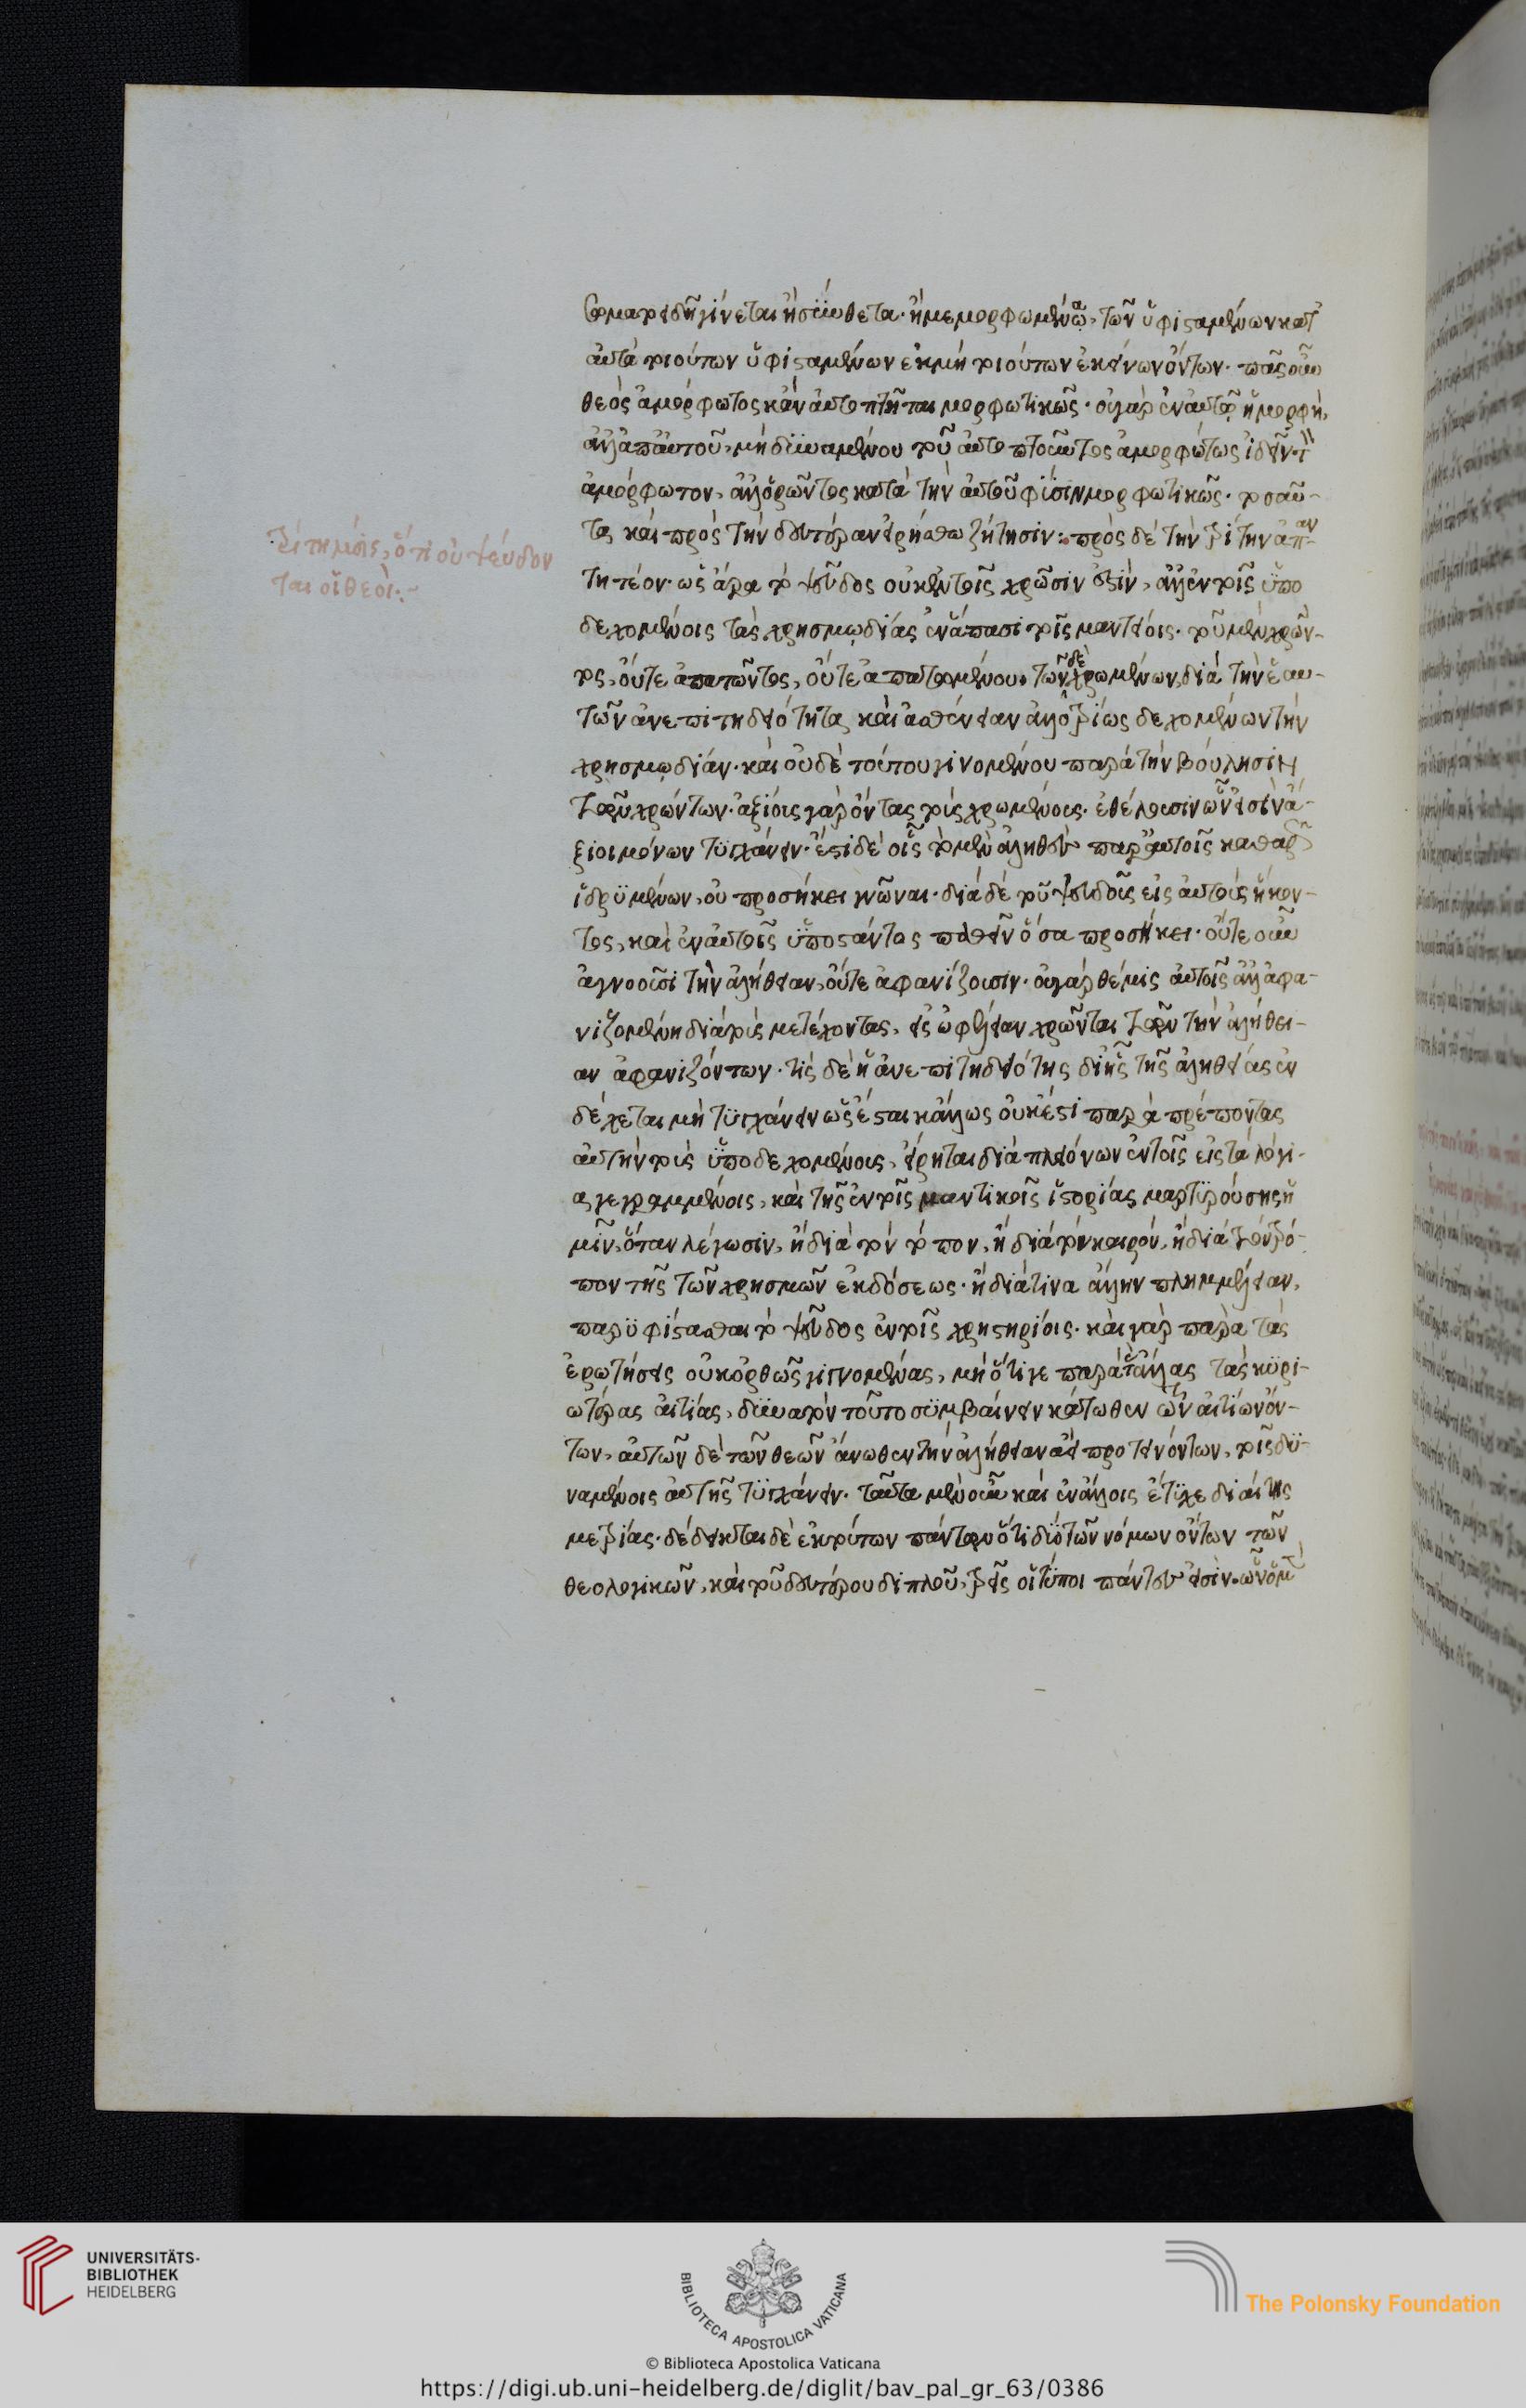 σωματοειδῆ γίνεται ἢ σύνθετα· ἢ μεμορφωμένα, τῶν ὑφισταμένων κατ
αὐτὰ τοιούτων ὑφισταμένων ἐκ μὴ τοιούτων ἐκείνων ὄντων· πᾶς οὖν
θεὸς ἀμόρφωτος κἂν αὐτοπτῆται μορφωτικῶς· οὐ γὰρ ἐν αὐτῷ ἡ μορφή,
ἀλλ' ἀπ' αὐτοῦ, μὴ δυναμένου τοῦ αὐτοπτοῦντος ἀμορφώτως ἰδεῖν τὸ
ἀμόρφωτον, ἀλλ' ὁρῶντος κατὰ τὴν αὐτοῦ φύσιν μορφωτικῶς· τοσαῦ-
τα καὶ πρὸς τὴν δευτέραν εἰρήσθω ζήτησιν: πρὸς δὲ τὴν τρίτην ἀπαν-
τητέον· ὡς ἄρα τὸ ψεῦδος οὐκ ἐν τοῖς χρῶσιν ἐστὶν, ἀλλ' ἐν τοῖς ὑπο
δεχομένοις τὰς χρησμῳδίας ἐν ἅπασι τοῖς μαντείοις· τοῦ μὲν χρῶν-
τος, οὔτε ἀπατῶντος, οὔτε ἀπατωμένου. τῶν δὲ χρωμένων, διὰ τὴν ἑαυ-
τῶν ἀνεπιτηδειότητα καὶ ἀσθένειαν ἀλλοτρίως δεχομένων τὴν
χρησμῳδίαν· καὶ οὐδὲ τούτου γινομένου παρὰ τὴν βούλησιν
τῶν χρώντων· ἀξίοις γὰρ ὄντας τοὺς χρωμένους· ἐθέλουσιν ὧν εἰσὶν ἄ-
ξιοι μόνων τυγχάνειν· ἔστι δὲ οἷς τὸ μὲν ἀληθὲς παρ' αὐτοῖς καθαρῶς
ἱδρυμένων, οὐ προσήκει γνῶναι· διὰ δὲ τοῦ ψεύδους εἰς αὐτοὺς ἥκον-
τος, καὶ ἐν αὐτοῖς ὑποστάντος παθεῖν ὅσα προσήκει· οὔτε οὖν
ἀγνοοῦσι τὴν ἀλήθειαν, οὔτε ἀφανίζουσιν· οὐ γὰρ θέμις αὐτοῖς ἀλλ' ἀφα-
νιζομένη διὰ τοὺς μετέχοντας, εἰς ὠφέλειαν χρῶνται τῶν τὴν ἀλήθει-
αν ἀφανιζόντων· τίς δὲ ἡ ἀνεπιτηδειότης δι' ἧς τῆς ἀληθείας ἐν
δέχεται μὴ τυγχάνειν ὡς ἔσται κἄλλως οὐκ ἔστι παρὰ πρέποντας
αὐτὴν τοὺς ὑποδεχομένοις, εἴρηται διὰ πλειόνων ἐν τοῖς εἰς τὰ λόγι-
α γεγραμμένοις, καὶ τῆς ἐν τοῖς μαντικοῖς ἱστορίας μαρτυρούσης ἡ
μῖν, ὅταν λέγωσιν, ἢ διὰ τὸν τόπον, ἢ διὰ τὸν καιρόν, ἢ διὰ τὸν τρό-
πον τῆς τῶν χρησμῶν ἐκδόσεως· ἢ διά τινα ἄλλην πλημμέλειαν,
παρυφίστασθαι τὸ ψεῦδος ἐν τοῖς χρηστηρίοις· καὶ γὰρ παρὰ τὰς
ἐρωτήσεις οὐκ ὀρθῶς γιγνομένας, μὴ ὅτι γε παρὰ τὰς ἄλλας τὰς κυρι-
ωτέρας αἰτίας, δυνατὸν τοῦτο συμβαίνειν κάτωθεν τῶν αἰτίων ὄν-
των, αὐτῶν δὲ τῶν θεῶν ἄνωθεν τὴν ἀλήθειαν ἀεὶ προτεινόντων, τοῖς δυ-
ναμένοις αὐτῆς τυγχάνειν. ταῦτα μὲν οὖν καὶ ἐν ἄλλοις ἔτυχε διαίτης
μετρίας· δέδεικται δὲ ἐκ τούτων πάντων ὅτι δύο τῶν νόμων ὄντων τῶν
θεολογικῶν, καὶ τοῦ δευτέρου διπλοῦ, τρεῖς οἱ τύποι πάντες εἰσὶν. ὧν ὁ μὲν
ζήτημα γον, ὅτι οὐ ψεύδον
ται οἱ θεοί:~
UNIVERSITÄTS-
BIBLIOTHEK
HEIDELBERG
BIBLIOTECA APOSTOLICA VATICANA
The Polonsky Foundation
© Biblioteca Apostolica Vaticana
https://digi.ub.uni-heidelberg.de/diglit/bav_pal_gr_63/0386